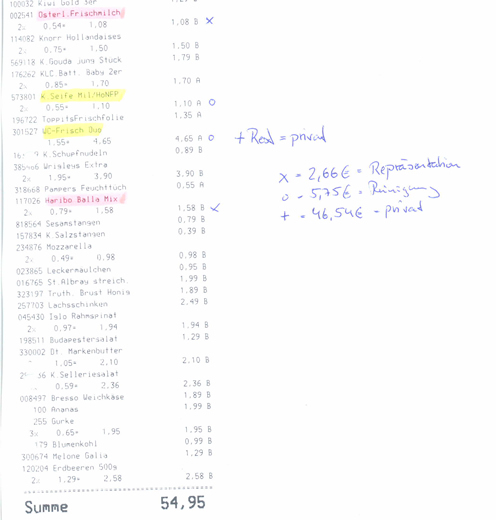 100032 Kiwi Gold
002541 Österl.Frischmilch
2x 0.54* 1.08 1.08 B x
114082 Knorr Hollandaises
2x 0.75* 1.50 1.50 B
569118 K.Gouda Jung Stück 1.79 B
176262 KLC.Batt. Baby 2er
2x 0.85* 1.70 1.70 A
573801 K.Seife Mil/HoNFP
2x 0.55* 1.10 1.10 A o
196722 ToppitsFrischfolie 1.35 A
301527 WC-Frisch Duo
1.55* 4.65 4.65 A o
K.Schupfnudeln 0.89 B
Wrigleys Extra
2x 1.95* 3.90 3.90 B
318668 Pampers Feuchttüch 0.55 A
117026 Haribo Balla Mix
2x 0.79* 1.58 1.58 B x
818564 Sesamstangen 0.79 B
157834 K.Salzstangen 0.39 B
234876 Mozzarella
2x 0.49* 0.98 0.98 B
023865 Leckermäulchen 0.95 B
016765 St.Albray streich. 1.99 B
323197 Truth. Brust Honig 1.89 B
257703 Lachsschinken 2.49 B
045430 Iglo Rahmspinat
2x 0.97* 1.94 1.94 B
198511 Budapestersalat 1.29 B
330002 Dt. Markenbutter
1.05* 2.10 2.10 B
K.Selleriesalat
0.59* 2.36 2.36 B
008497 Bresso Weichkäse 1.89 B
100 Ananas 1.99 B
255 Gurke
3x 0.65* 1.95 1.95 B
179 Blumenkohl 0.99 B
300674 Melone Galia 1.29 B
120204 Erdbeeren 500g
2x 1.29* 2.58 2.58 B
Summe 54,95
+ Rest = privat
x = 2,66€ = Repräsentation
o = 5,75€ = Reinigung
+ = 46,54€ = privat